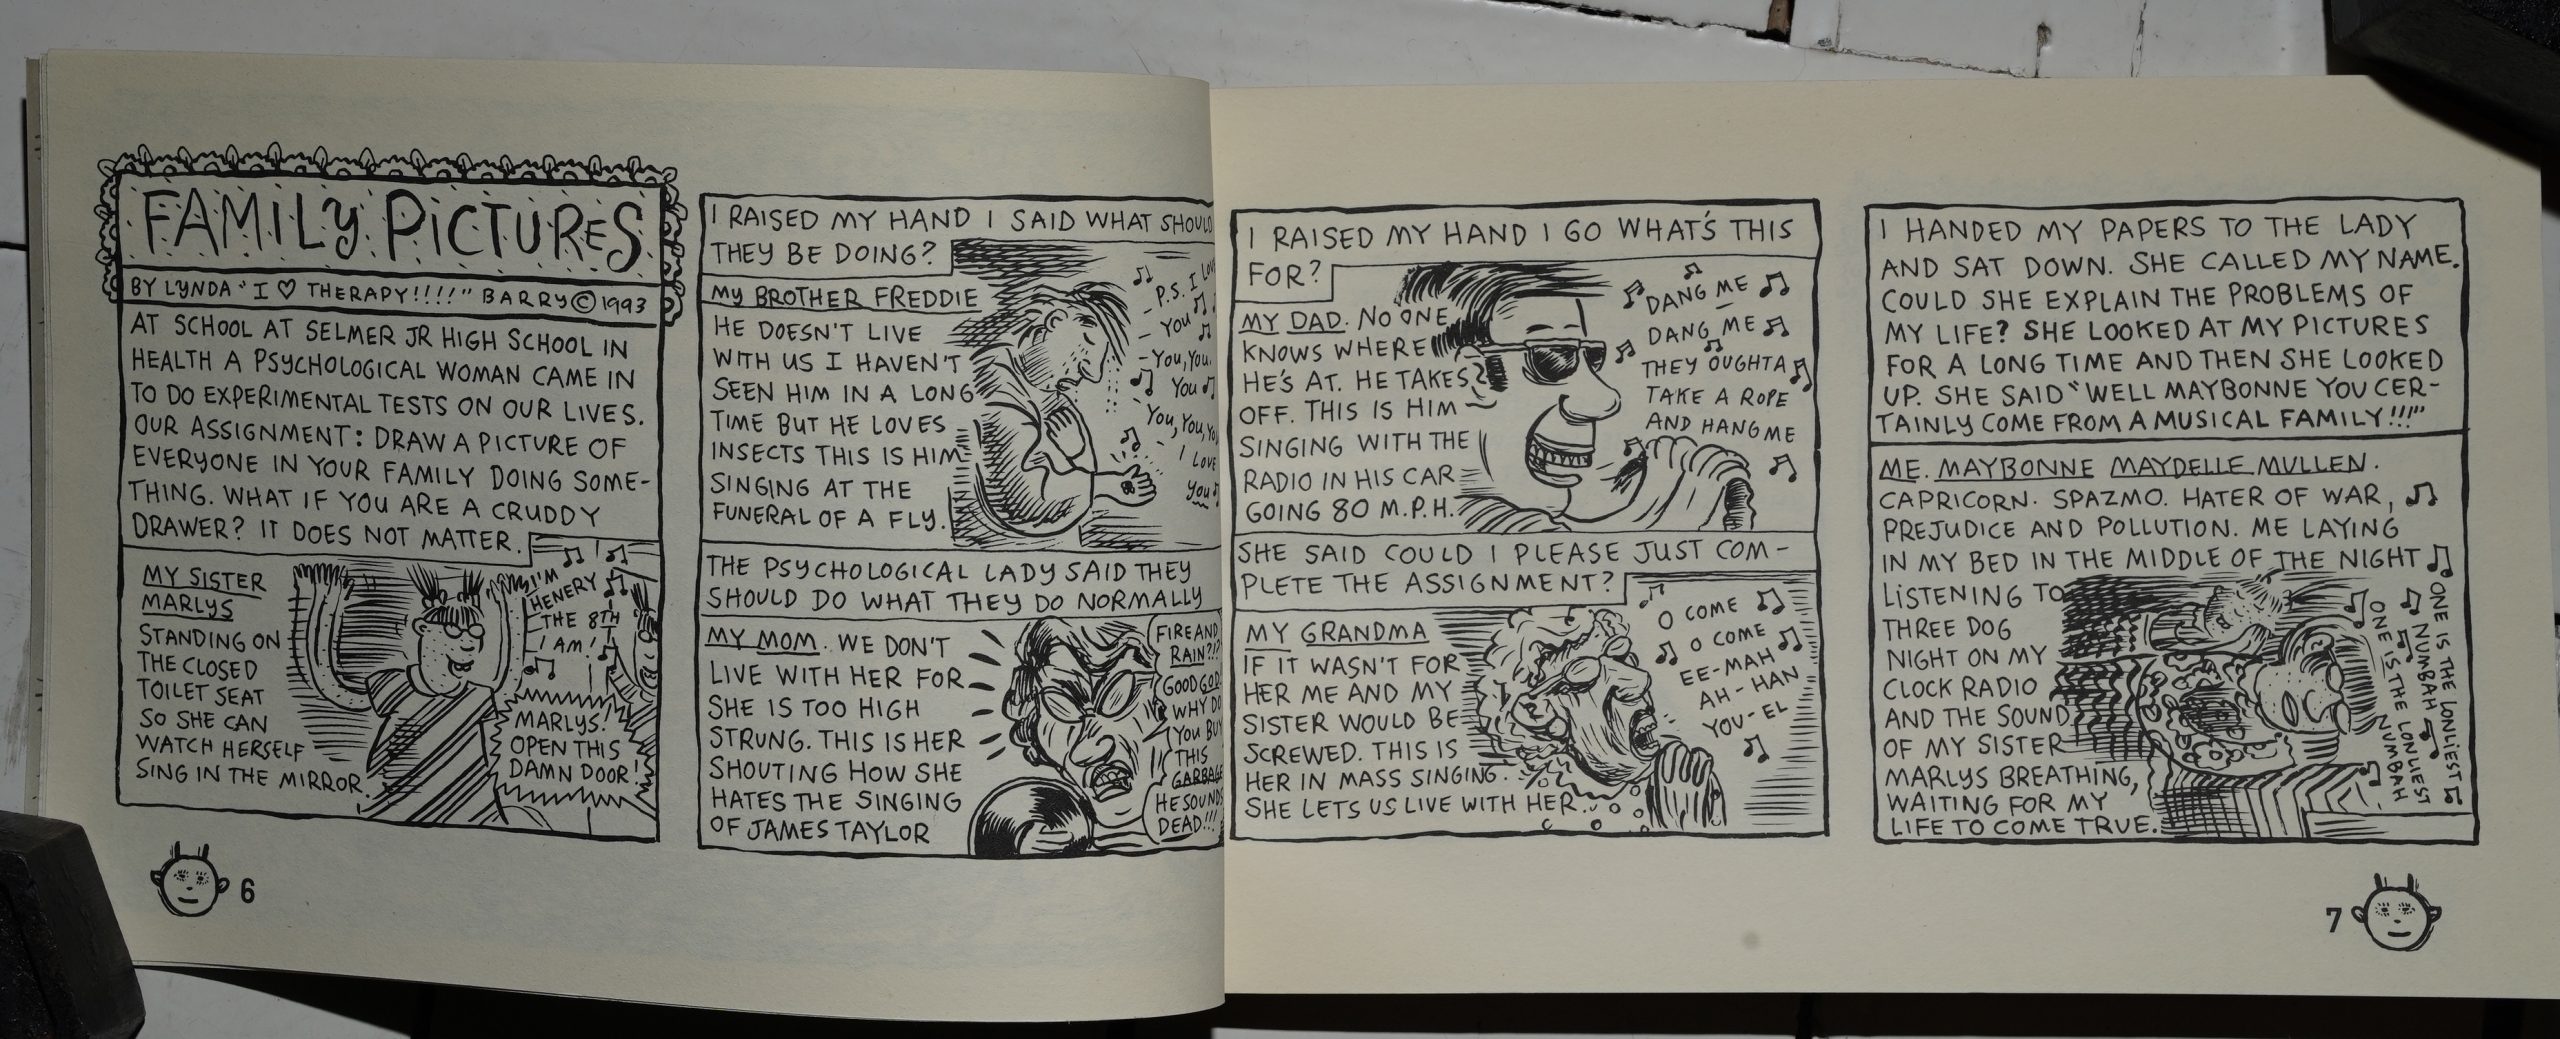 FAMILY PICTURES
BY LYNDA "I ♡ THERAPY!!!!" BARRY © 1993
AT SCHOOL AT SELMER JR HIGH SCHOOL IN
HEALTH A PSYCHOLOGICAL WOMAN CAME IN
TO DO EXPERIMENTAL TESTS ON OUR LIVES.
OUR ASSIGNMENT: DRAW A PICTURE OF
EVERYONE IN YOUR FAMILY DOING SOME-
THING. WHAT IF YOU ARE A CRUDDY
DRAWER? IT DOES NOT MATTER.
MY SISTER
MARLYS
STANDING ON
THE CLOSED
TOILET SEAT
SO SHE CAN
WATCH HERSELF
SING IN THE MIRROR.
I'M
HENERY
THE 8TH
I AM!
MARLYS!
OPEN THIS
DAMN DOOR!
6
I RAISED MY HAND I SAID WHAT SHOULD
THEY BE DOING?
MY BROTHER FREDDIE
HE DOESN'T LIVE
WITH US I HAVEN'T
SEEN HIM IN A LONG
TIME BUT HE LOVES
INSECTS THIS IS HIM
SINGING AT THE
FUNERAL OF A FLY.
P.S. I LOVE
YOU
YOU, YOU,
YOU
YOU, YOU, YOU
I LOVE
YOU
THE PSYCHOLOGICAL LADY SAID THEY
SHOULD DO WHAT THEY DO NORMALLY
MY MOM. WE DON'T
LIVE WITH HER FOR
SHE IS TOO HIGH
STRUNG. THIS IS HER
SHOUTING HOW SHE
HATES THE SINGING
OF JAMES TAYLOR
FIRE AND
RAIN?!?
GOOD GOD!
WHY DO
YOU BUY
THIS
GARBAGE
HE SOUNDS
DEAD!!!
I RAISED MY HAND I GO WHAT'S THIS
FOR?
MY DAD. NO ONE
KNOWS WHERE
HE'S AT. HE TAKES
OFF. THIS IS HIM
SINGING WITH THE
RADIO IN HIS CAR
GOING 80 M.P.H.
DANG ME
DANG ME
THEY OUGHTA
TAKE A ROPE
AND HANG ME
SHE SAID COULD I PLEASE JUST COM-
PLETE THE ASSIGNMENT?
MY GRANDMA
IF IT WASN'T FOR
HER ME AND MY
SISTER WOULD BE
SCREWED. THIS IS
HER IN MASS SINGING.
SHE LETS US LIVE WITH HER.
O COME
O COME
EE-MAH
AH-HAN
YOU-EL
I HANDED MY PAPERS TO THE LADY
AND SAT DOWN. SHE CALLED MY NAME.
COULD SHE EXPLAIN THE PROBLEMS OF
MY LIFE? SHE LOOKED AT MY PICTURES
FOR A LONG TIME AND THEN SHE LOOKED
UP. SHE SAID "WELL MAYBONNE YOU CER-
TAINLY COME FROM A MUSICAL FAMILY!!!"
ME. MAYBONNE MAYDELLE MULLEN.
CAPRICORN. SPAZMO. HATER OF WAR,
PREJUDICE AND POLLUTION. ME LAYING
IN MY BED IN THE MIDDLE OF THE NIGHT
LISTENING TO
THREE DOG
NIGHT ON MY
CLOCK RADIO
AND THE SOUND
OF MY SISTER
MARLYS BREATHING,
WAITING FOR MY
LIFE TO COME TRUE.
ONE IS THE LONLIEST
NUMBAH
ONE IS THE LONLIEST
NUMBAH
7